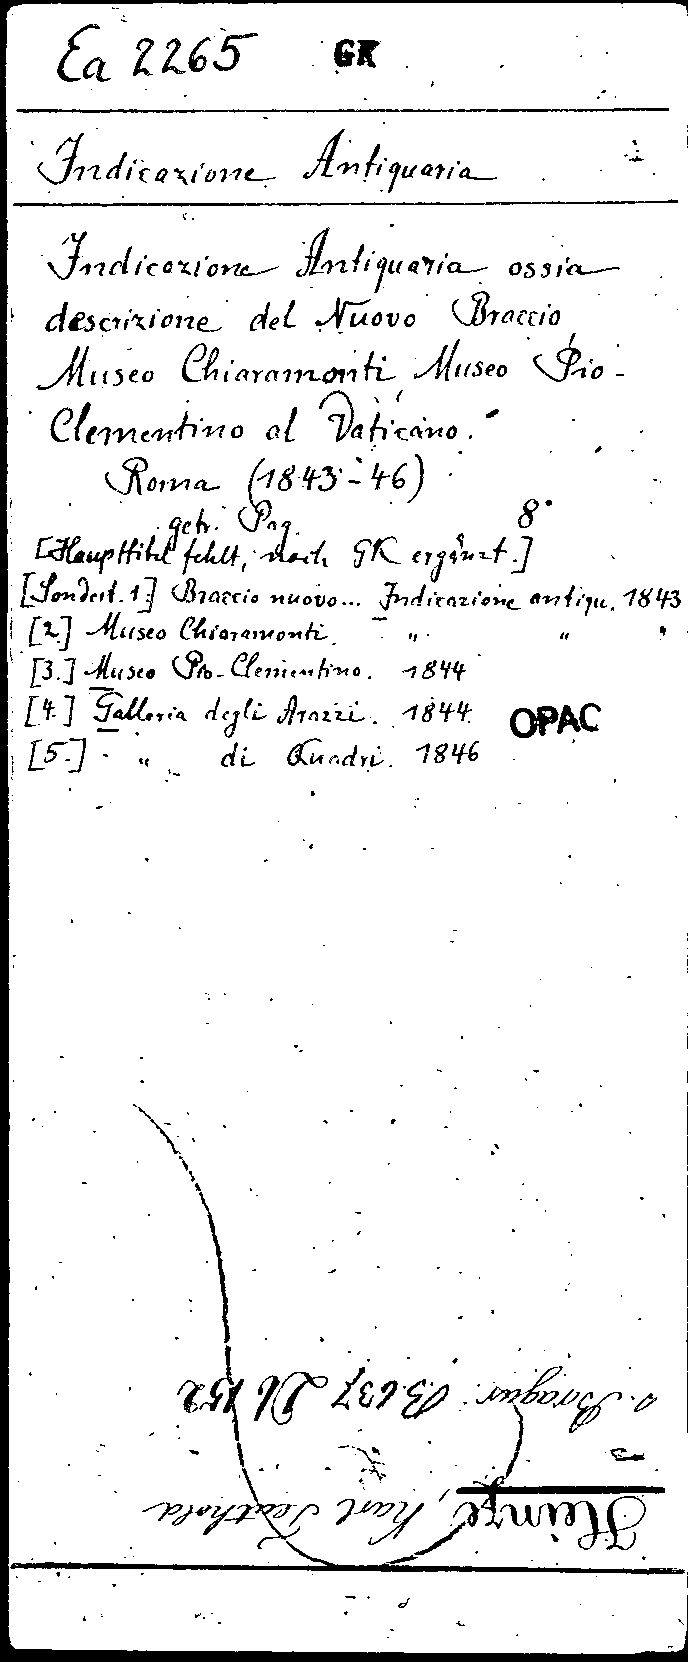 Ea 2265 GK
Indicazione Antiquaria
Indicazione Antiquaria ossia
descrizione del Nuovo Braccio
Museo Chiaramonti, Museo Pio-
Clementino al Vaticano.
Roma (1843-46)
getr. Pag. 8°
[Haupttitel fehlt, nach GK ergänzt.]
[Sondert. 1.] Braccio nuovo... Indicazione antiqu. 1843
[2.] Museo Chiaramonti. " " "
[3.] Museo Pio-Clementino. 1844
[4.] Galleria degli Arazzi. 1844.
[5.] " di Quadri. 1846
OPAC
Heinze, Karl
s. Bragur